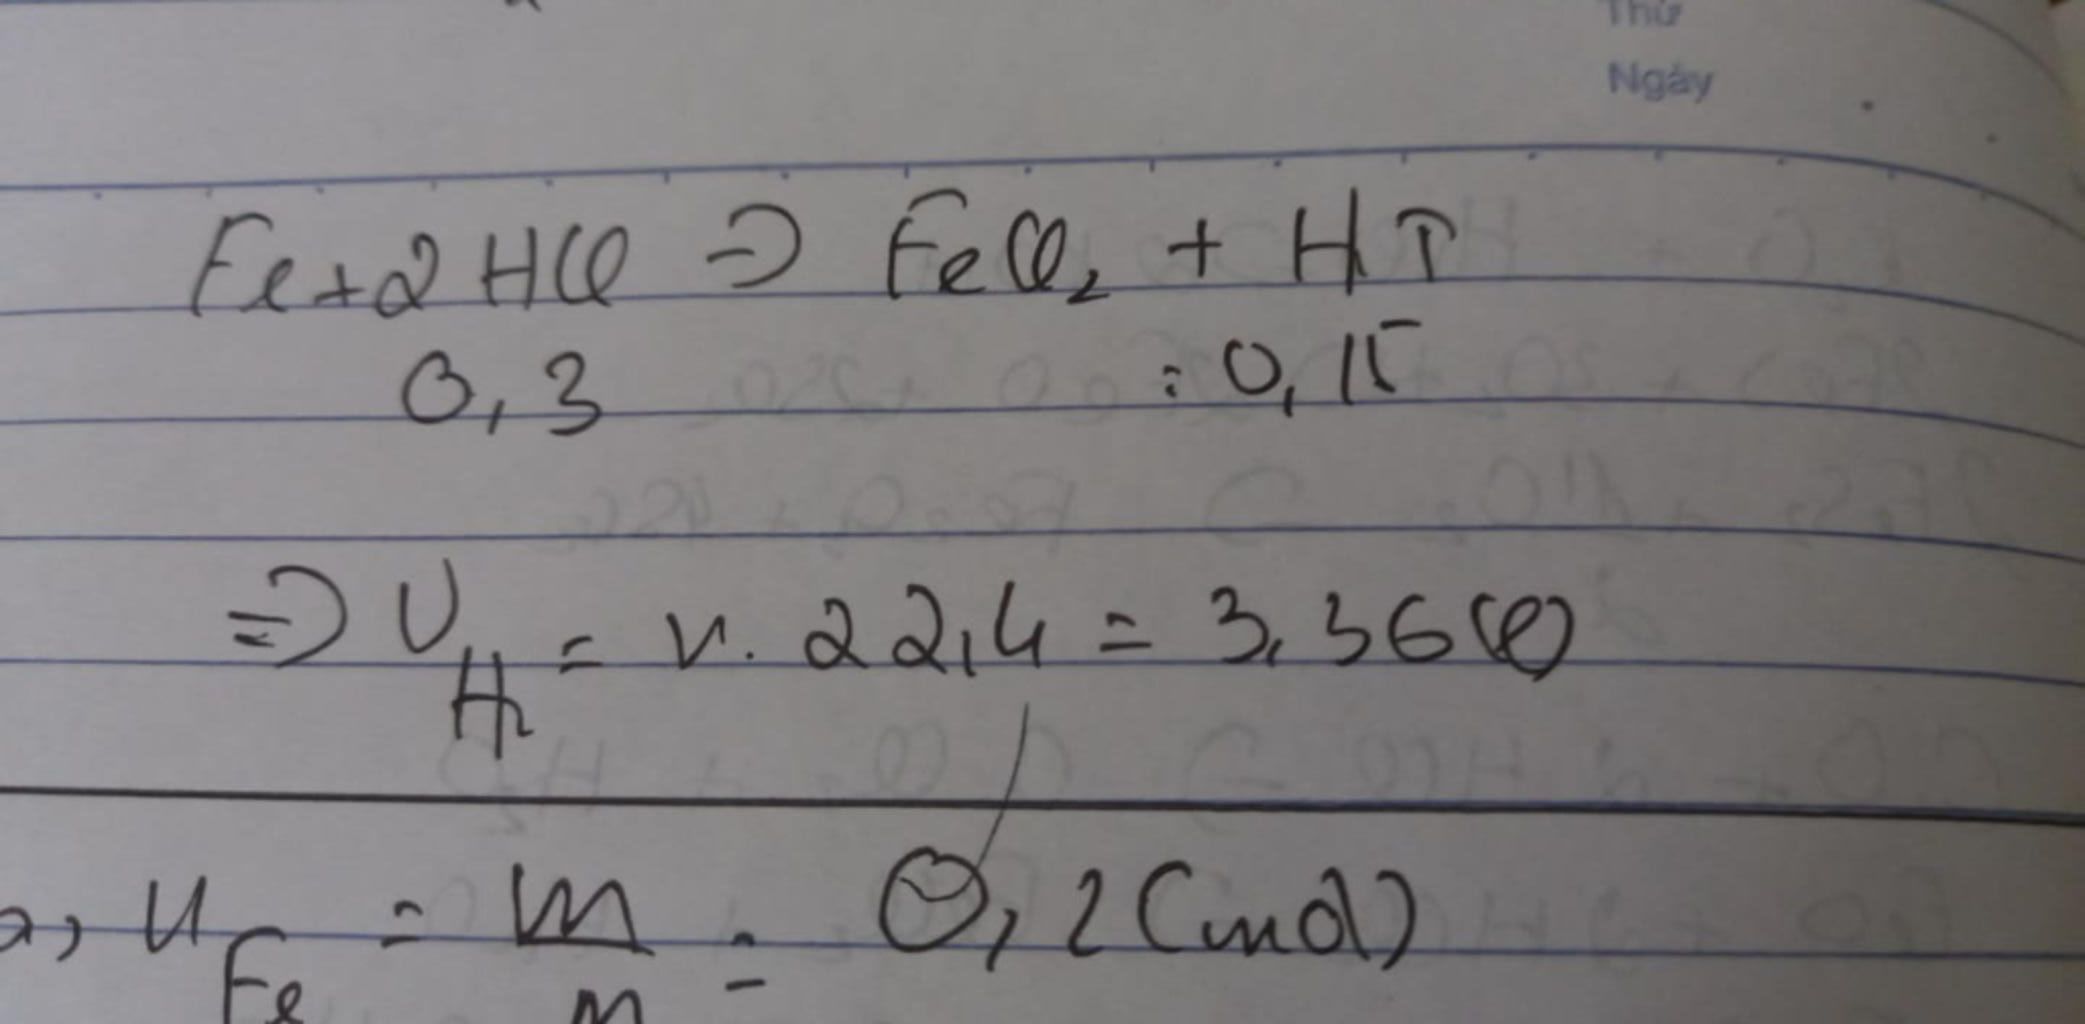 Thứ
Ngày
Fe + 2HCl => FeCl₂ + H↑
0,3 : 0,15
=> V_H₂ = n. 22,4 = 3,36 (l)
a, n_Fe = m/m = 0,2 (mol)